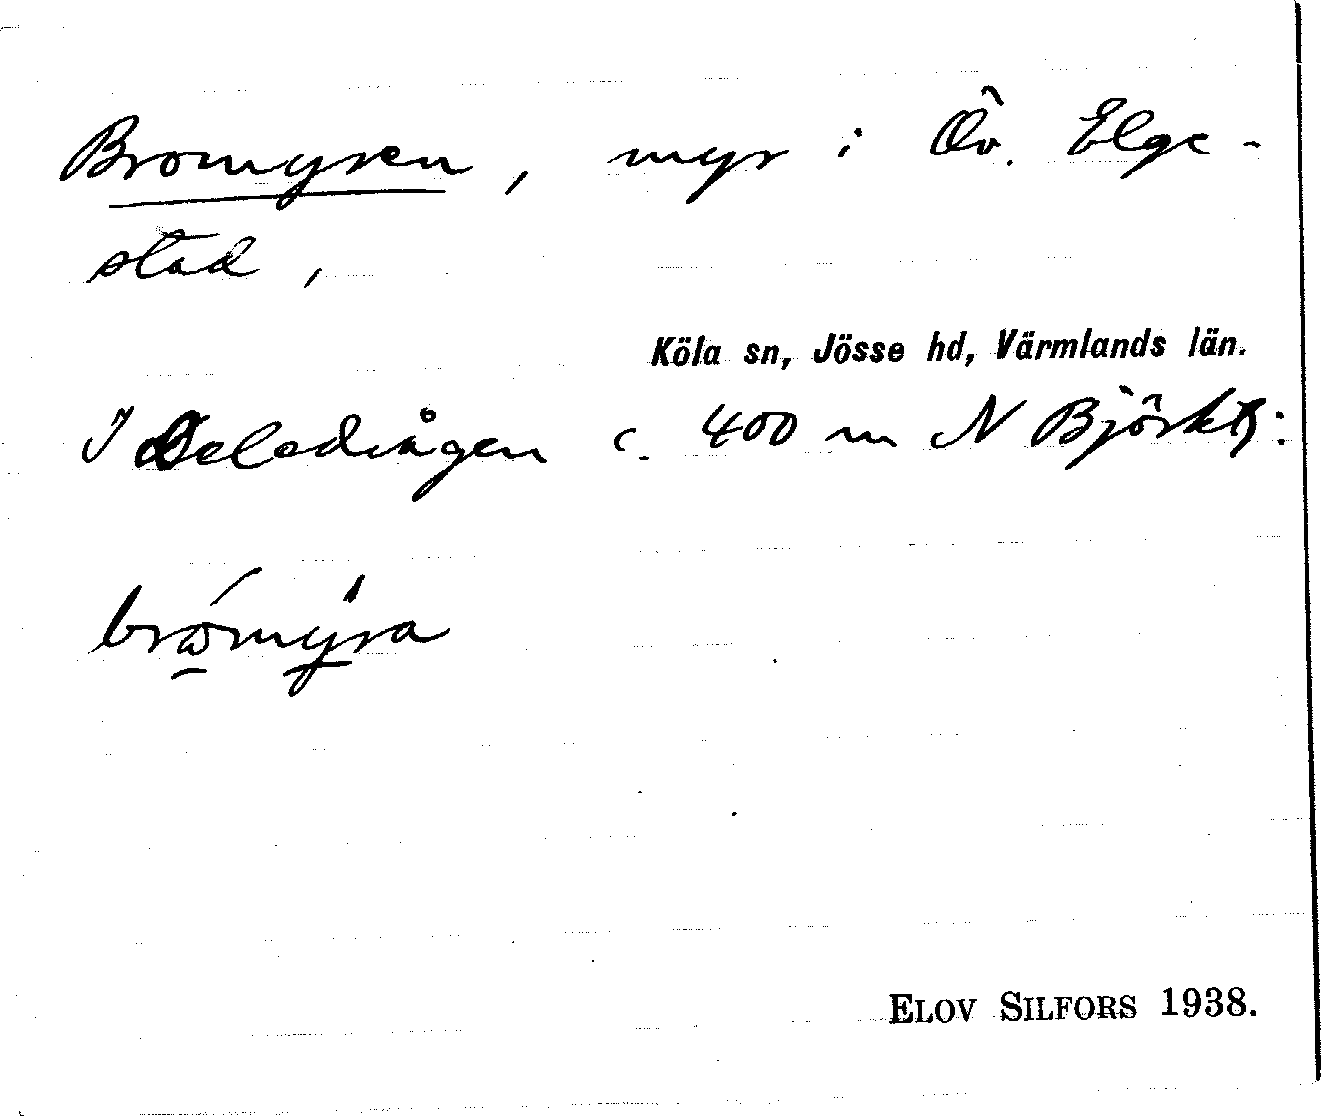 Bromyren, myr i Öv. Elge-
stad,
Köla sn, Jösse hd, Värmlands län.
I c. 400 m N Björkb:
brömyra
ELOV SILFORS 1938.